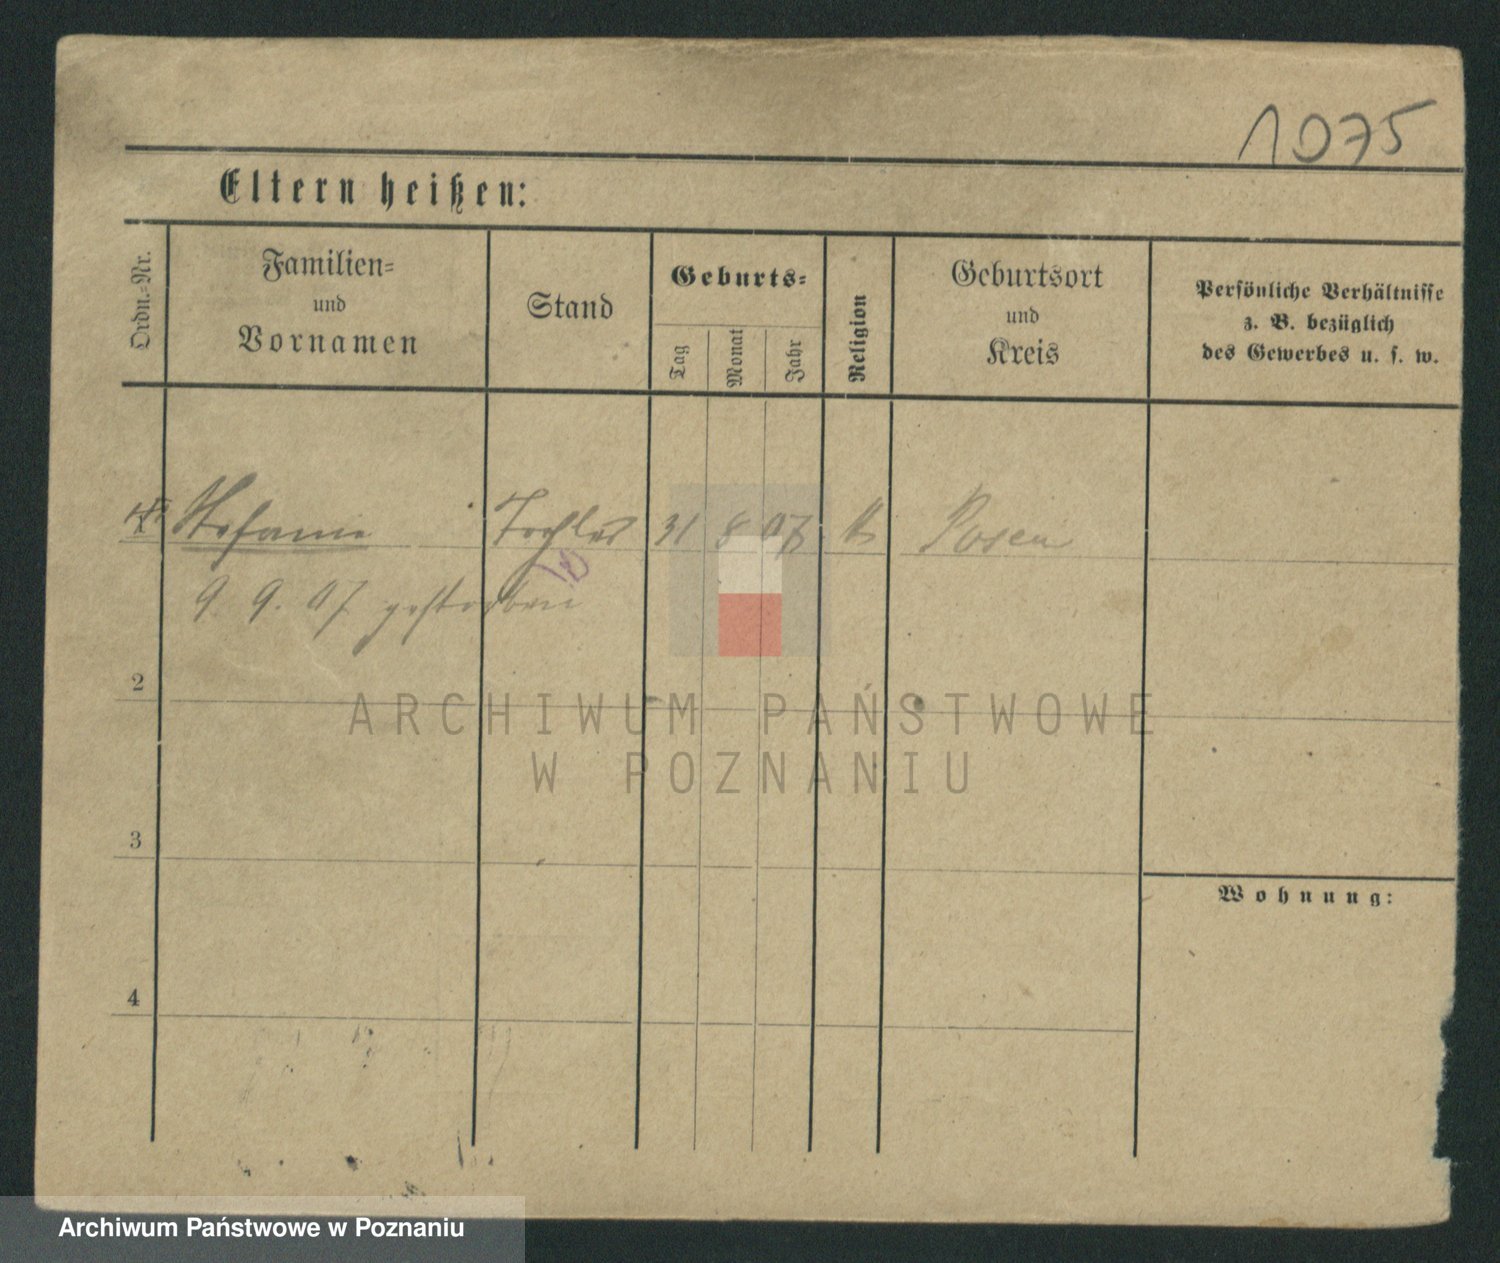 1075
Eltern heißen:
Ordn.-Nr.
Familien-
und
Vornamen
Stand
Geburts-
Tag
Monat
Jahr
Religion
Geburtsort
und
Kreis
Persönliche Verhältnisse
z. B. bezüglich
des Gewerbes u. s. w.
Stefanie Tochter 31 8 07 k Posen
9. 9. 07 gestorben
2
3
4
Wohnung:
ARCHIWUM PAŃSTWOWE
W POZNANIU
Archiwum Państwowe w Poznaniu